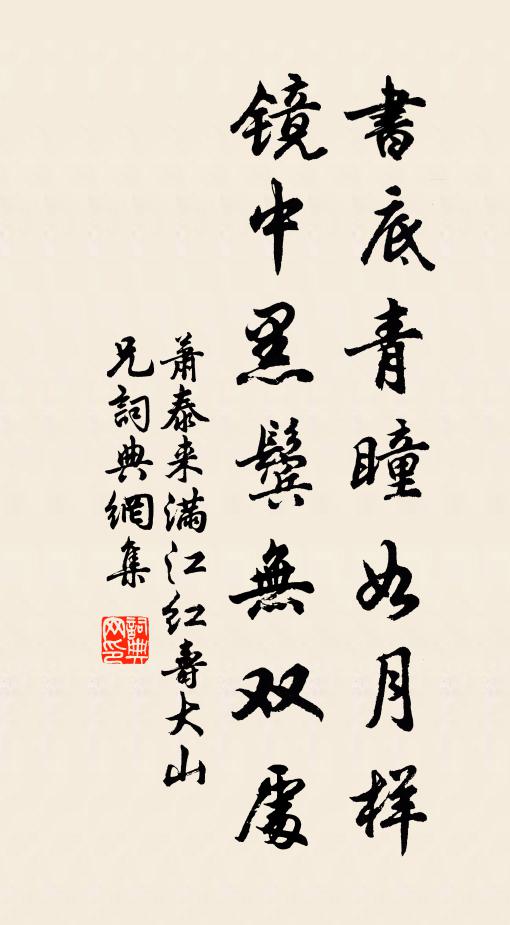 書底青瞳如月样
镜中黑鬓無双處
萧泰来满江红壽大山
兄詞典網集
詞典网印